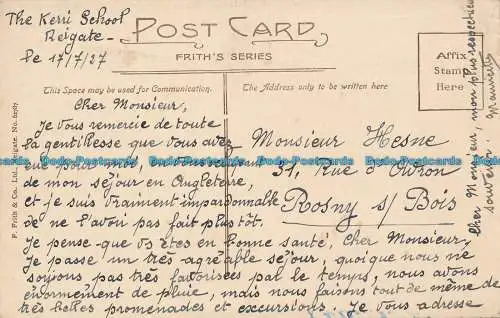 The Kerri School
Reigate -
le 17/7/27
POST CARD
FRITH'S SERIES
This Space may be used for Communication.
The Address only to be written here
Affix
Stamp
Here
F. Frith & Co., Ltd., Reigate. No.
Cher Monsieur,
Je vous remercie de toute
la gentillesse que vous avez
eue pour moi,
de mon séjour en Angleterre,
et je suis vraiment impardonnable
de ne l'avoir pas fait plus tôt.
Je pense que vs êtes en bonne santé, cher Monsieur,
Je passe un très agréable séjour, quoique nous ne
soyons pas très favorisées par le temps, nous avons
énormément de pluie, mais nous faisons tout de même de
très belles promenades et excursions. Je vous adresse
Monsieur Hesne
31, Rue d'Avron
Rosny s/ Bois
cher Monsieur, mon plus respectueux
souvenir
Bado-Postcards Bado-Postcards Bado-Postcards Bado-Postcards